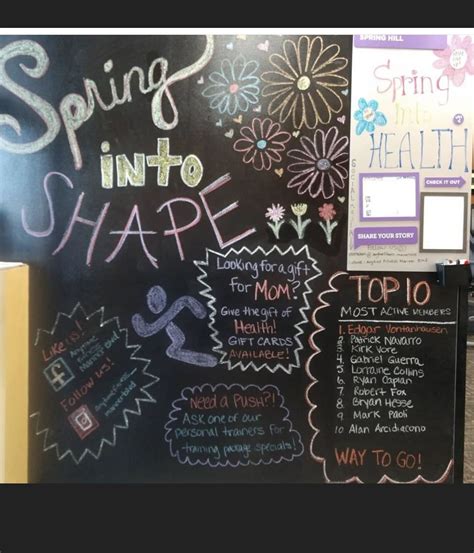 Spring
into
SHAPE
SPRING HILL
Spring
into
HEALTH
CHECK IT OUT
SHARE YOUR STORY
Looking for a gift
for MOM?
Give the gift of
Health!
GIFT CARDS
AVAILABLE!
TOP 10
MOST ACTIVE MEMBERS
1. Edgar Vontanhausen
2 Patrick Navarro
3 Kirk Vore
4 Gabriel Guerra
5 Lorraine Collins
6 Ryan Caplan
7 Robert Fox
8 Bryan Hesse
9 Mark Paoli
10 Alan Arcidiacono
WAY TO GO!
Like us!
Anytime
Fitness
f
Follow us!
Need a Push?!
ASK one of our
personal trainers for
training package specials!